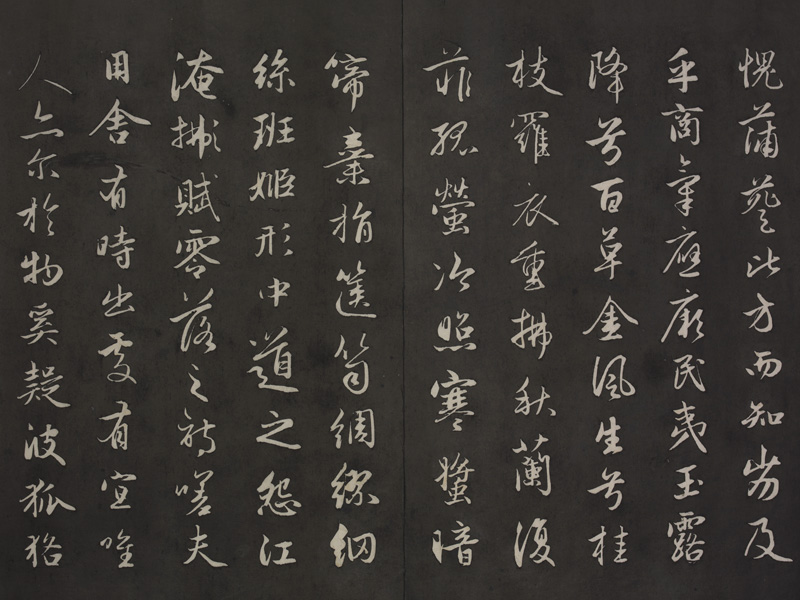 愧蒲葵比方而知劣及
乎商氣應厥民夷玉露
降兮百草金風生兮桂
枝羅衣重拂秋蘭復
菲孤螢冷照寒螿暗
啼橐捐篋笥綢繆網
絲班姬形中道之怨江
淹擬賦零落之詩嗟夫
用舍有時出處有宜唯
人亦尔於物奚疑彼狐狢